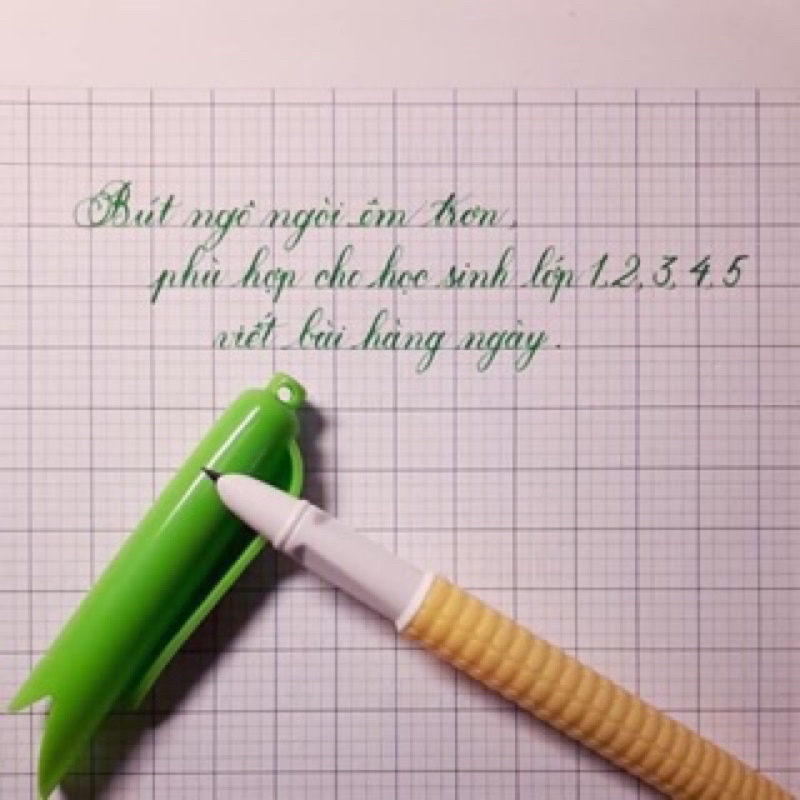 Bút ngô ngòi êm trơn,
phù hợp cho học sinh lớp 1, 2, 3, 4, 5
viết bài hàng ngày.